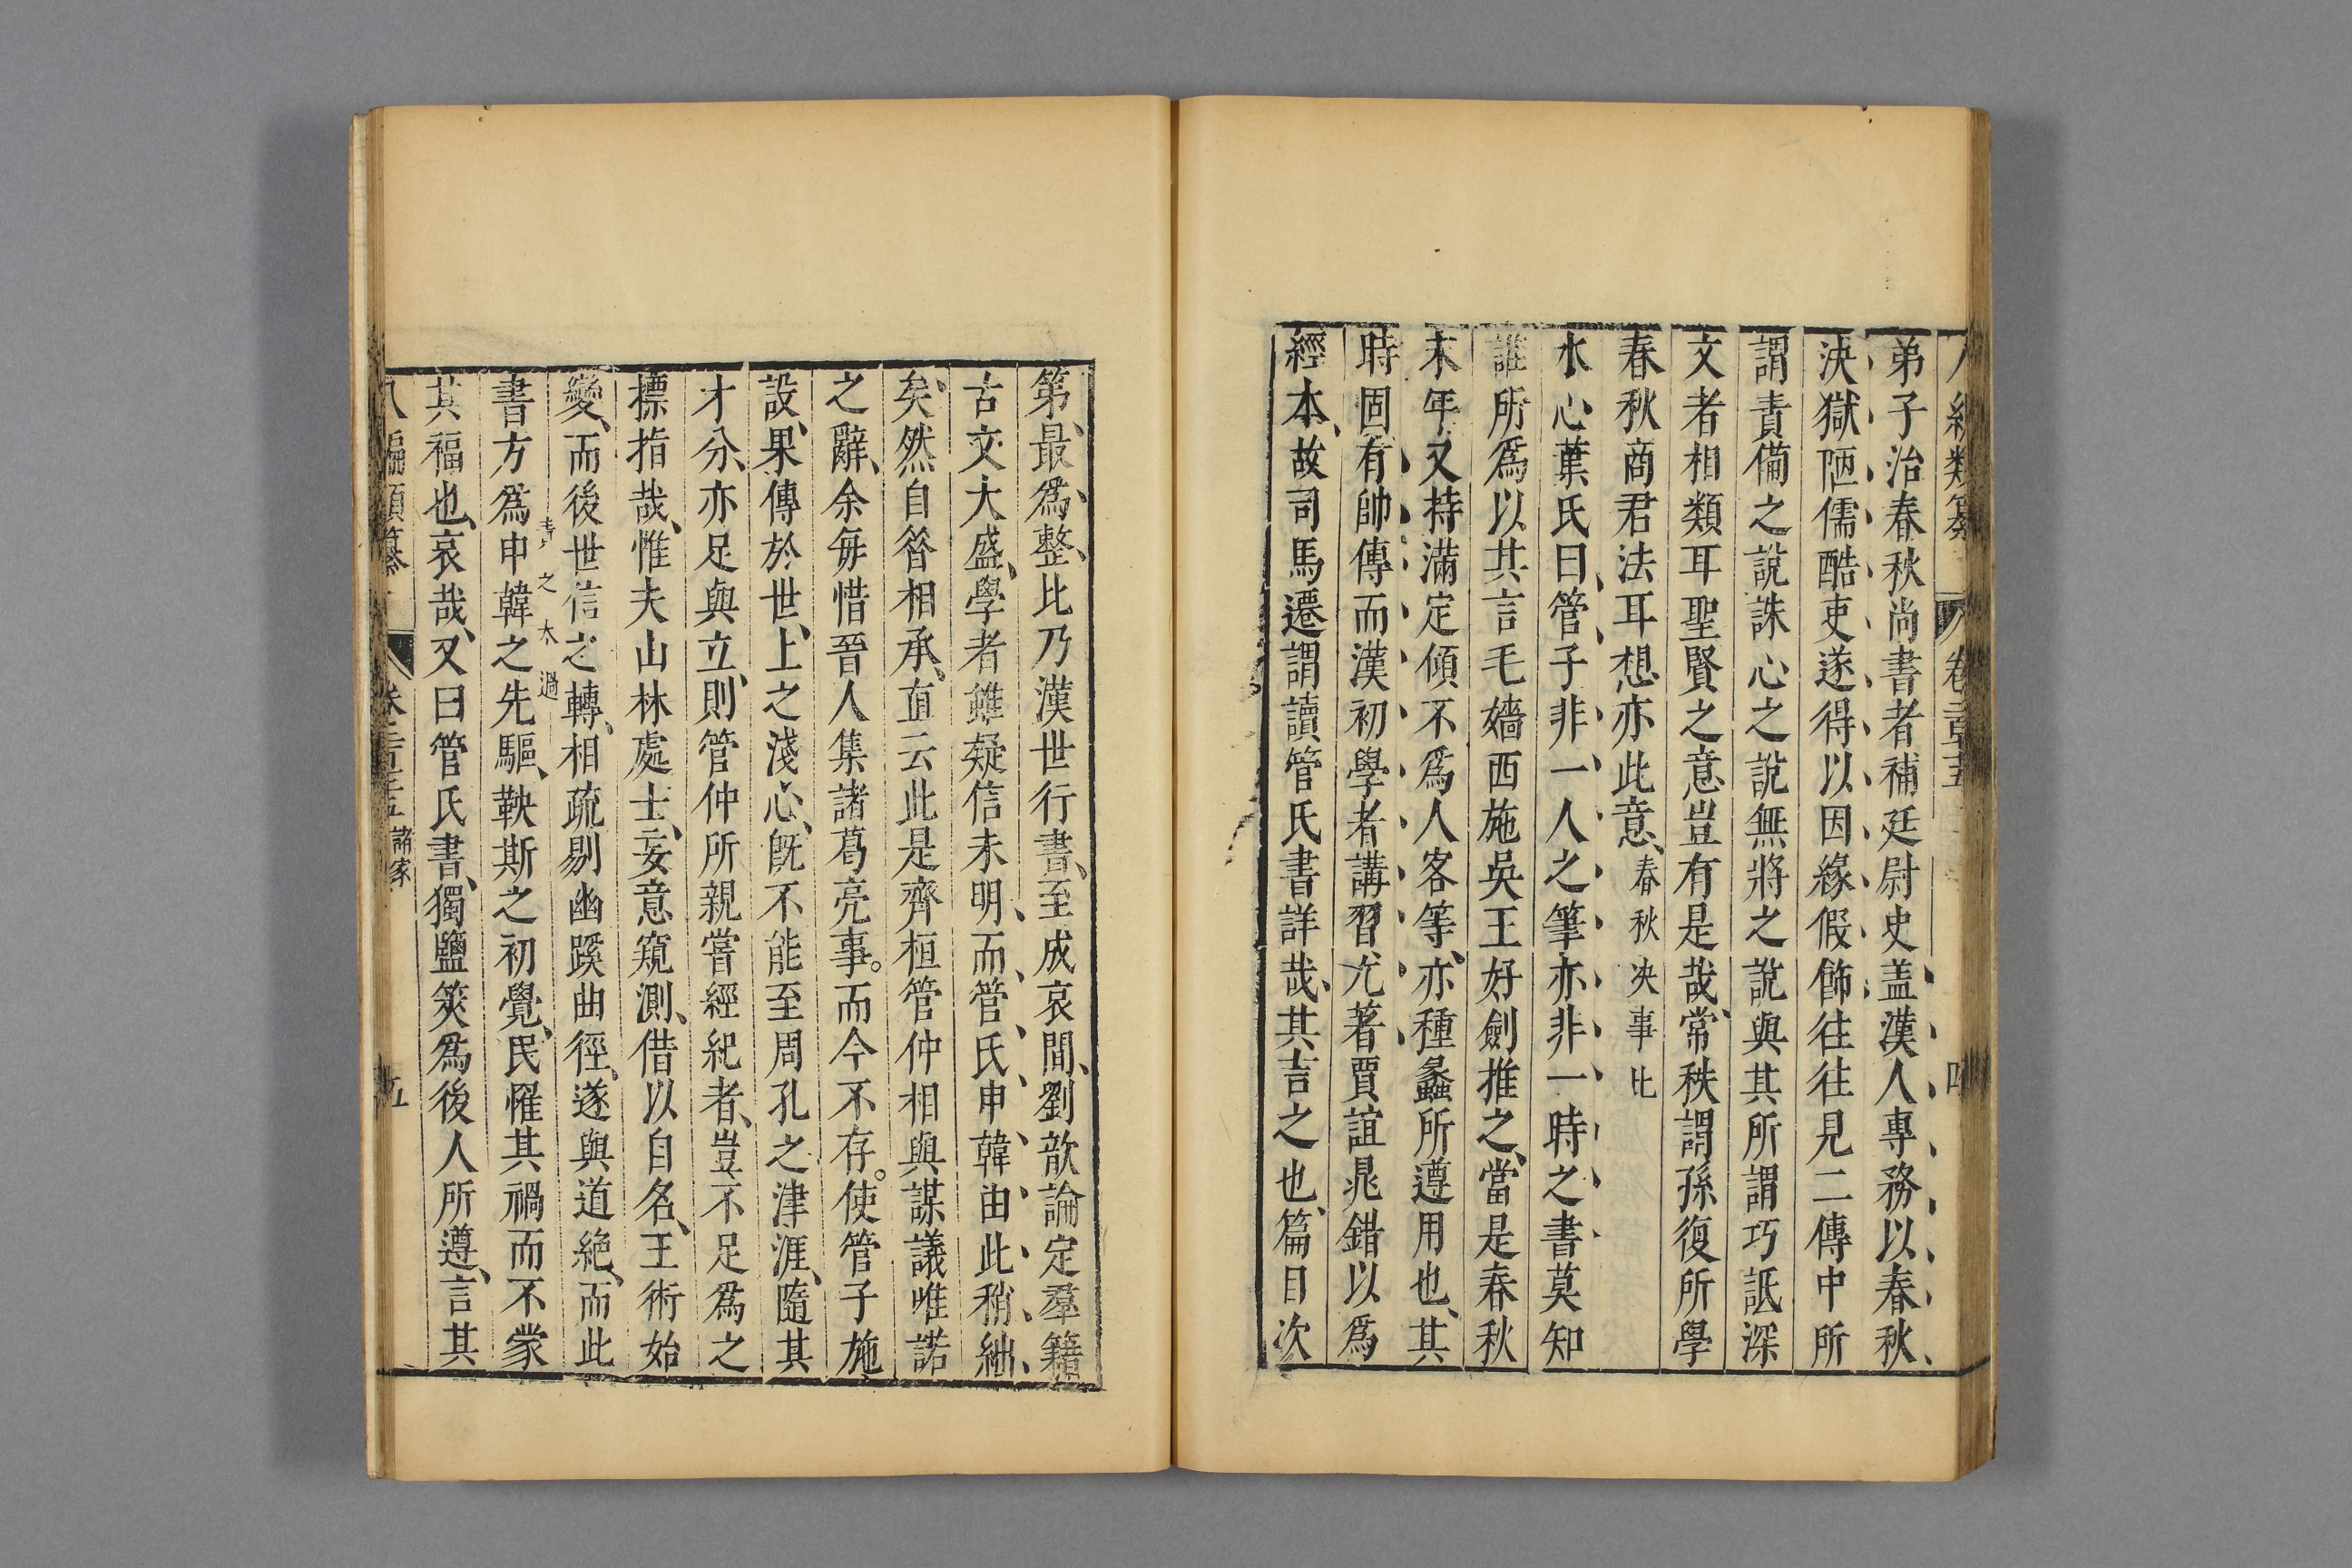 弟子治春秋尚書者補廷尉史盖漢人專務以春秋
決獄陋儒酷吏遂得以因緣假飾往往見二傳中所
謂責備之說誅心之說無將之說與其所謂巧詆深
文者相類耳聖賢之意豈有是哉常秩謂孫復所學
春秋商君法耳想亦此意春秋决事比
水心葉氏曰管子非一人之筆亦非一時之書莫知
誰所爲以其言毛嬙西施吳王好劍推之當是春秋
末年又持滿定傾不爲人客等亦種蠡所遵用也其
時固有帥傳而漢初學者講習尤著賈誼鼂錯以爲
經本故司馬遷謂讀管氏書詳哉其言之也篇目次
第最爲整比乃漢世行書至成哀間劉歆論定羣籍
古文大盛學者雖疑信未明而管氏申韓由此稍絀
矣然自昝相承直云此是齊桓管仲相與謀議唯諾
之辭余每惜晉人集諸葛亮事而今不存使管子施
設果傳於世上之淺心既不能至周孔之津涯隨其
才分亦足與立則管仲所親嘗經紀者豈不足爲之
標指哉惟夫山林處士妄意窺測借以自名王術始
變而後世信之轉相疏剔幽蹊曲徑遂與道絶而此
書方爲申韓之先驅鞅斯之初覺民罹其禍而不蒙
其福也哀哉又曰管氏書獨鹽筴爲後人所遵言其
八編類纂 卷 諸家 五